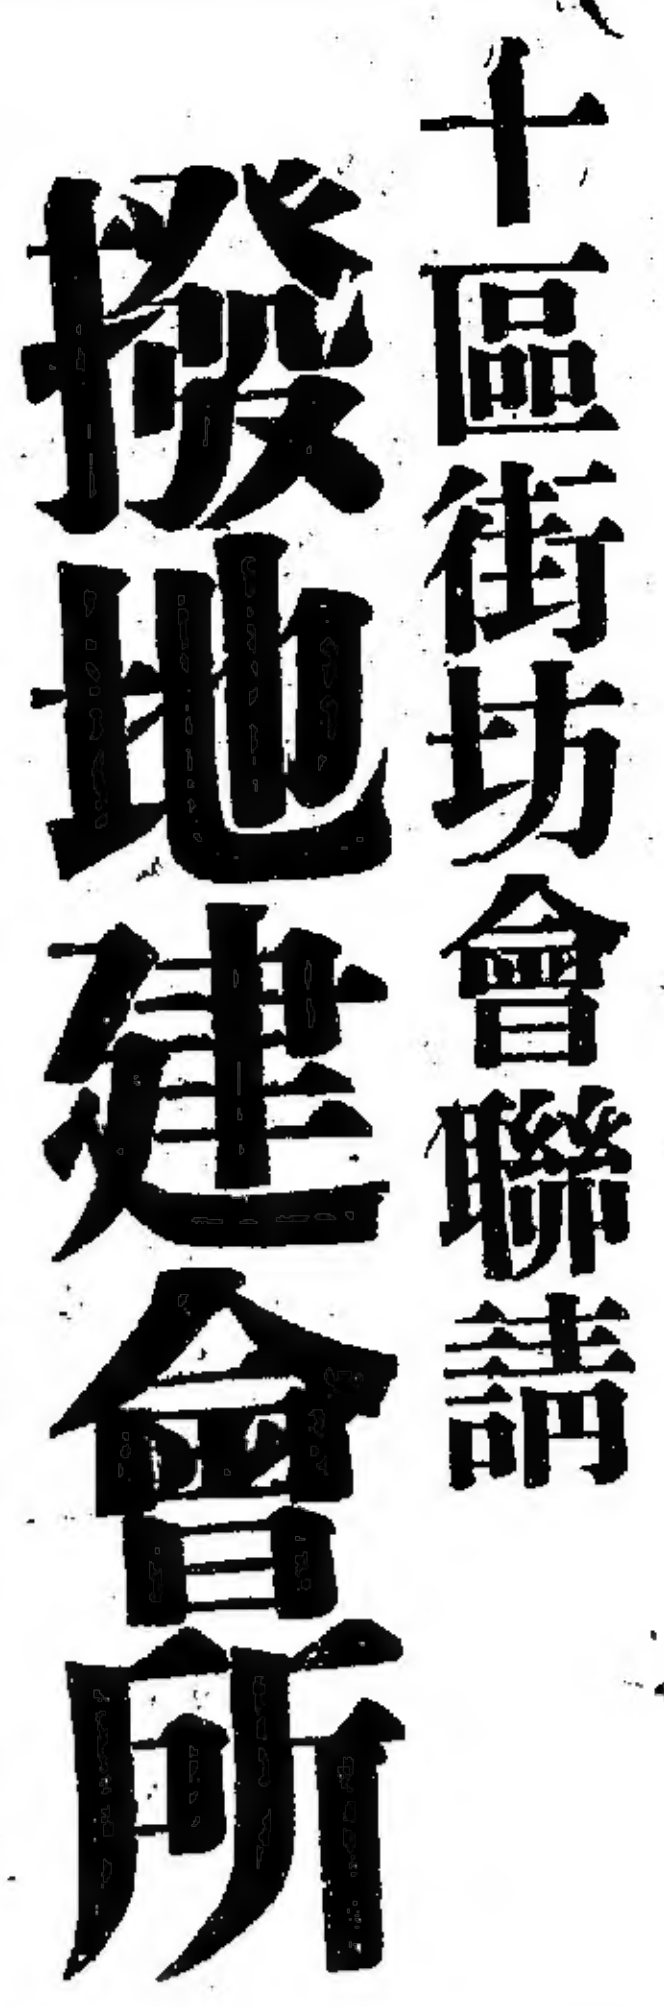 十區街坊會聯請
撥地建會所